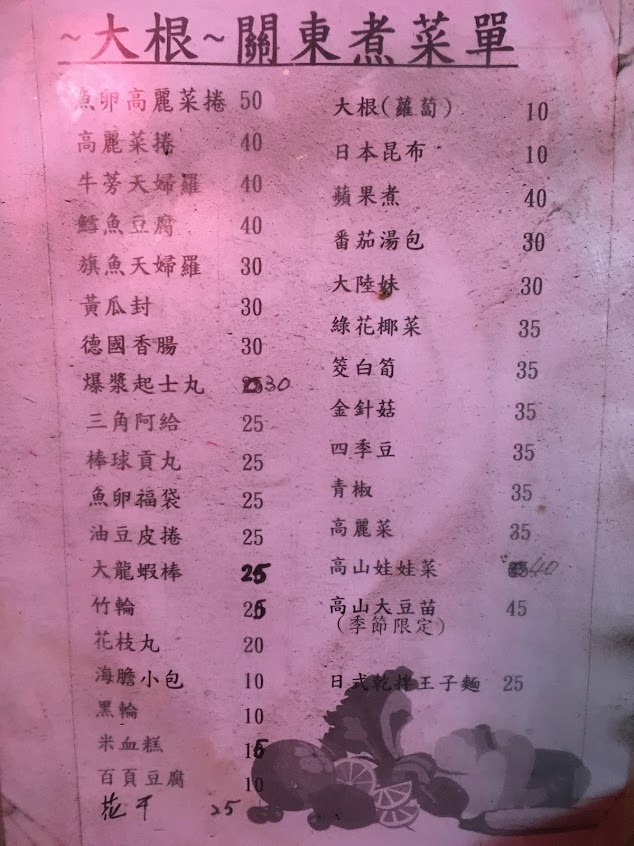 ~大根~關東煮菜單
魚卵高麗菜捲 50
高麗菜捲 40
牛蒡天婦羅 40
鱈魚豆腐 40
旗魚天婦羅 30
黃瓜封 30
德國香腸 30
爆漿起士丸 30
三角阿給 25
棒球貢丸 25
魚卵福袋 25
油豆皮捲 25
大龍蝦棒 25
竹輪 25
花枝丸 20
海膽小包 10
黑輪 10
米血糕 15
百頁豆腐 10
花干 25
大根(蘿蔔) 10
日本昆布 10
蘋果煮 40
番茄湯包 30
大陸妹 30
綠花椰菜 35
筊白筍 35
金針菇 35
四季豆 35
青椒 35
高麗菜 35
高山娃娃菜 40
高山大豆苗 45
(季節限定)
日式乾拌王子麵 25